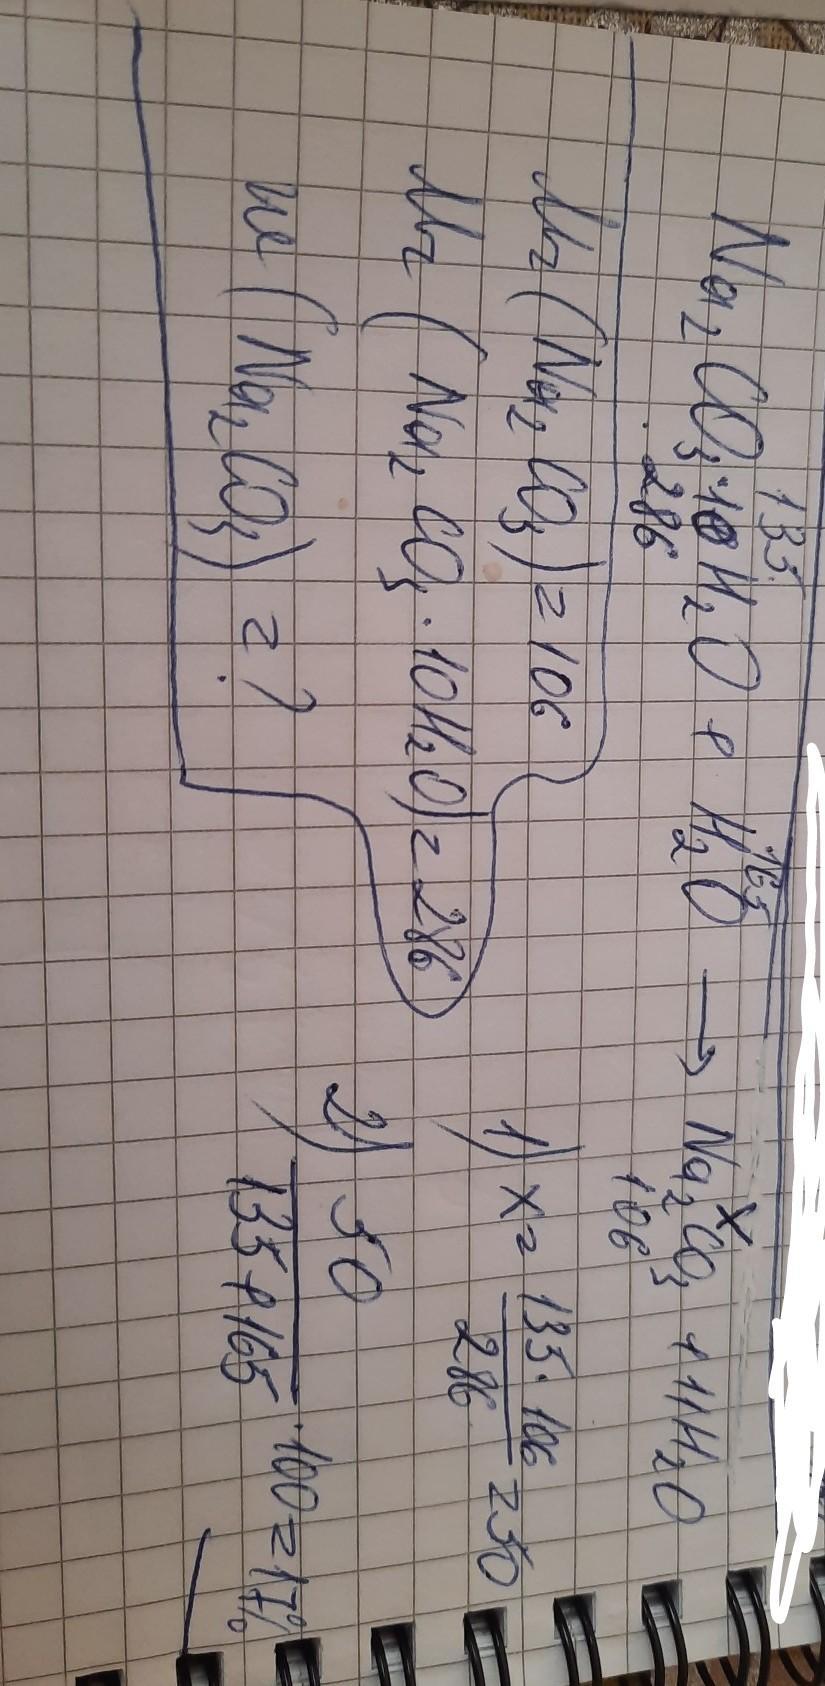 135 165 x
Na₂CO₃·10H₂O + H₂O → Na₂CO₃ + 11H₂O
286 106
Mr (Na₂CO₃) = 106
Mr (Na₂CO₃·10H₂O) = 286
w (Na₂CO₃) = ?
1) x = 135·106 / 286 = 50
2) 50 / 135 + 165 · 100 = 17%